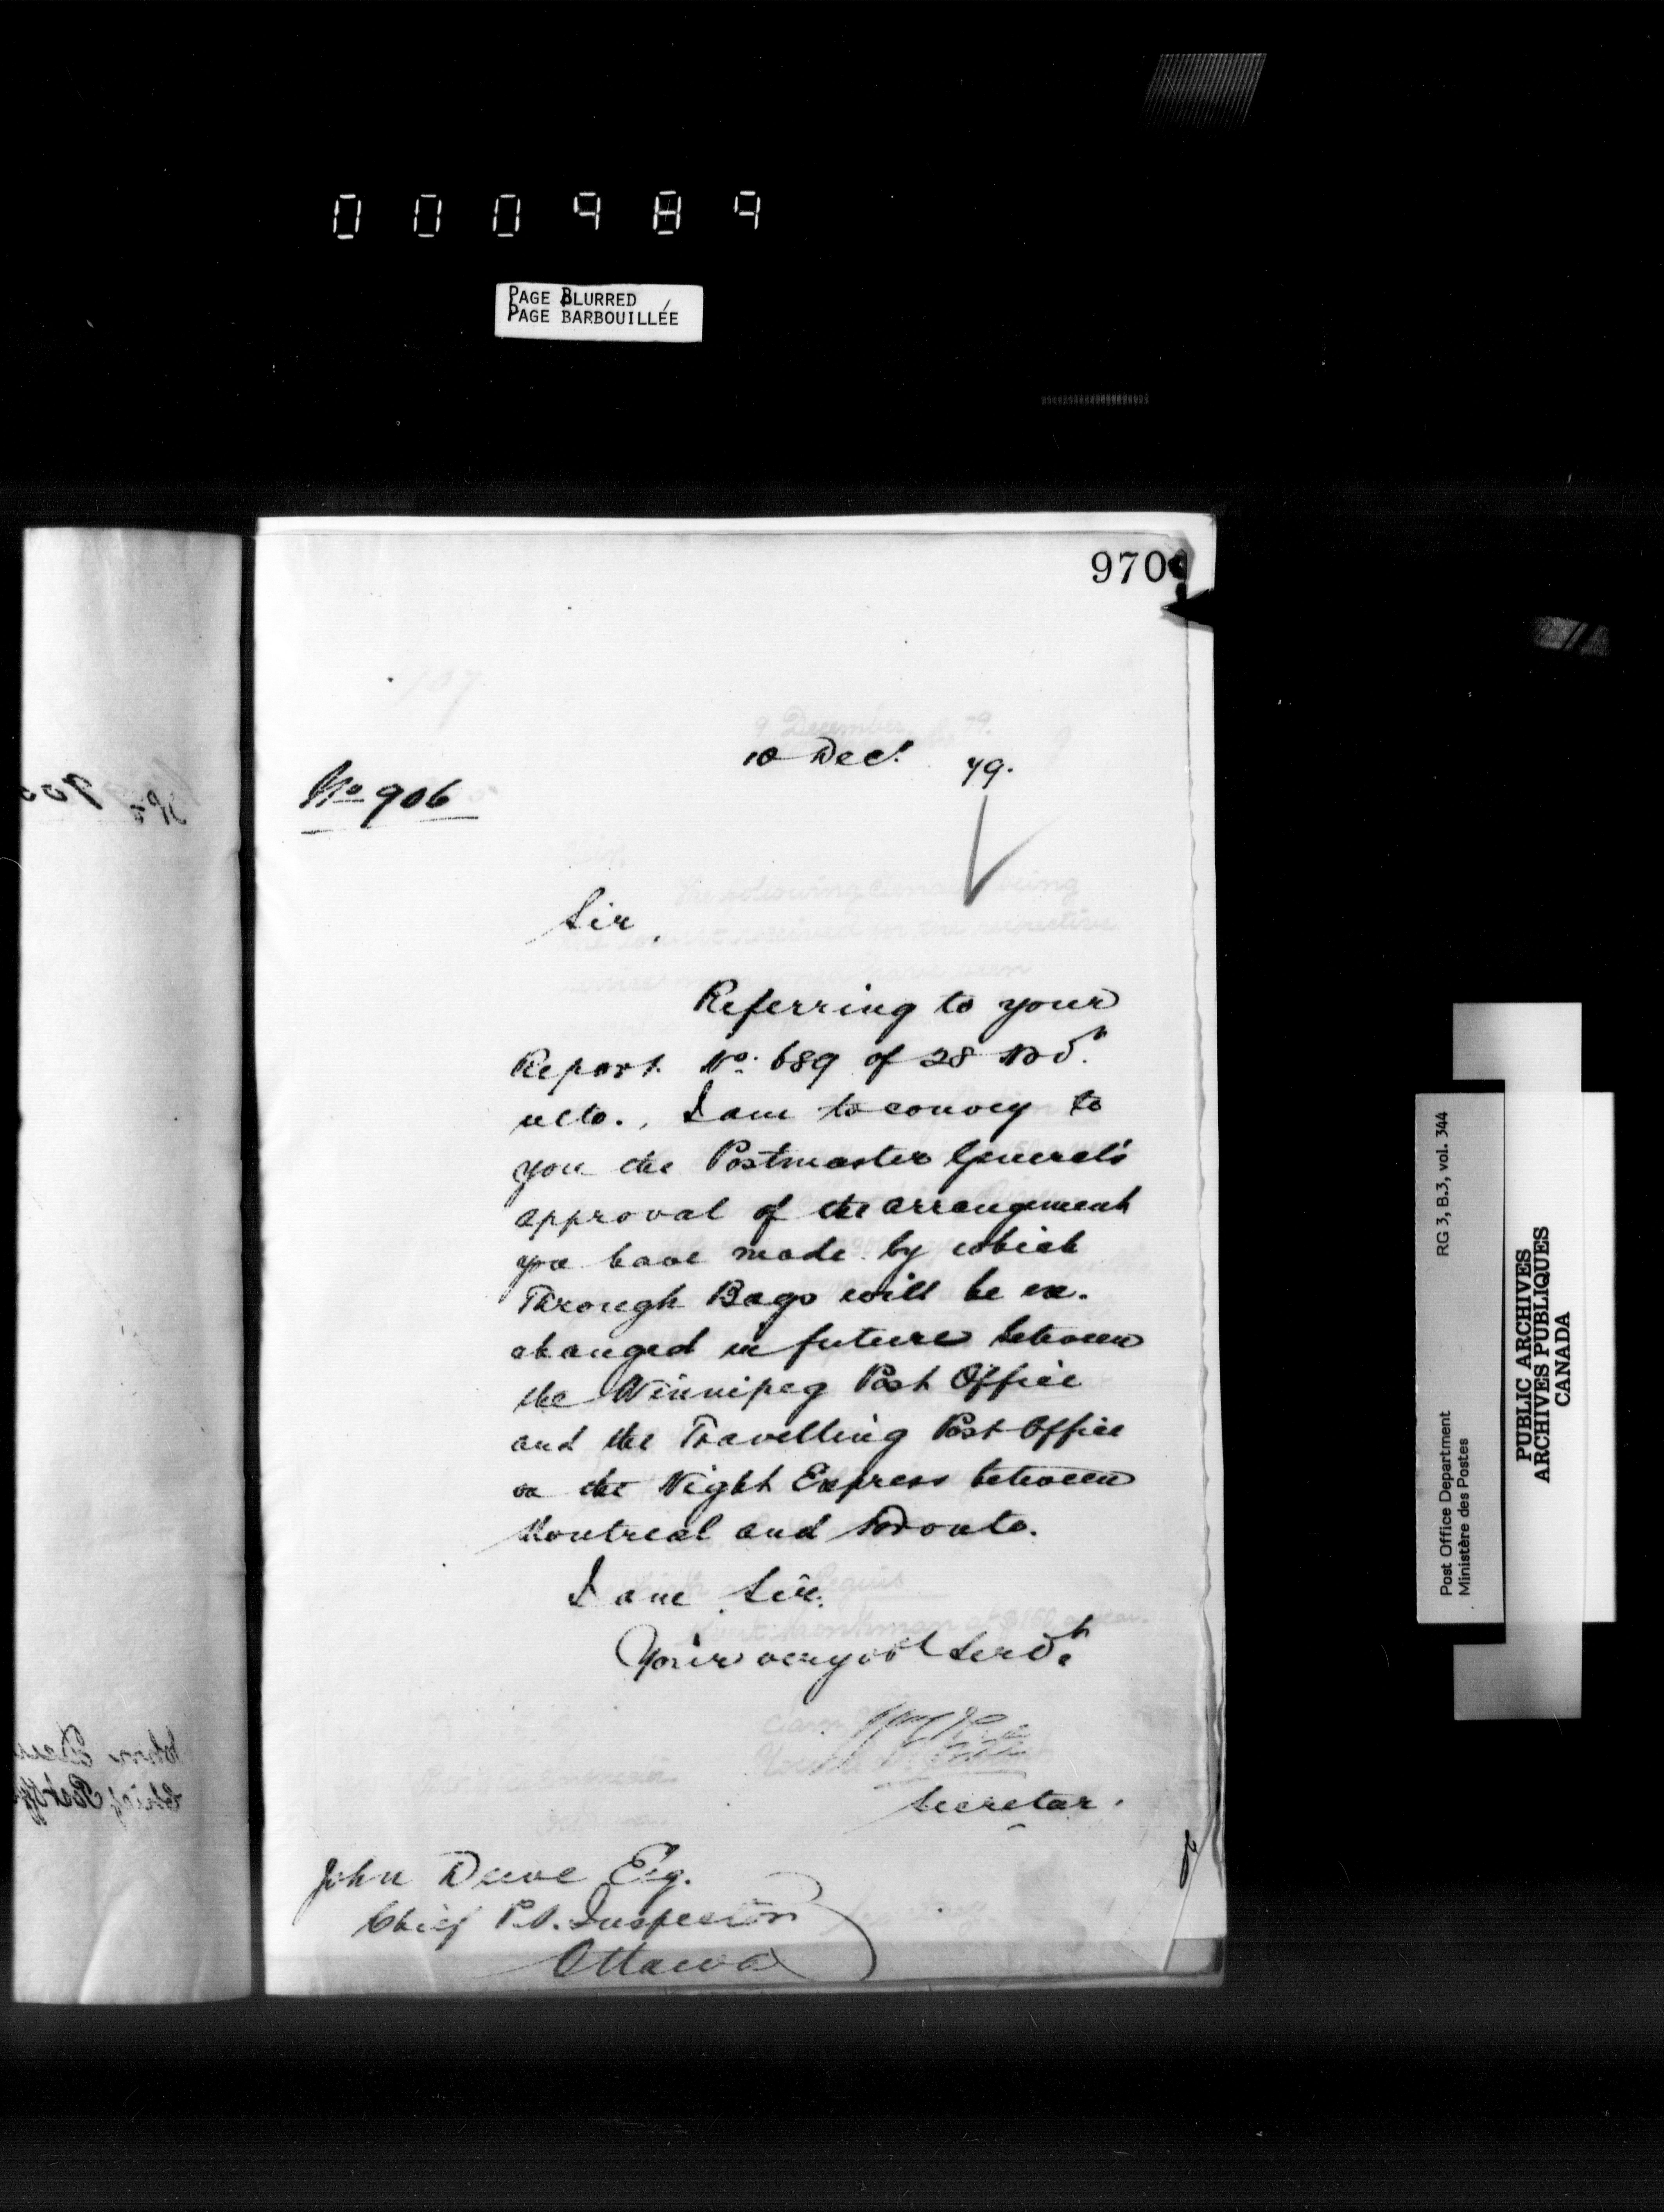 000989
PAGE BLURRED
PAGE BARBOUILLÉE
970
10 Decr. 79.
No 906
Sir,
Referring to your
Report No. 689 of 28 Novr.
ulto., I am to convey to
you the Postmaster General's
approval of the arrangement
you have made by which
Through Bags will be ex-
changed in future between
the Winnipeg Post Office
and the Travelling Post Office
on the Night Express between
Montreal and Toronto.
I am Sir,
Your very obt Servt.
Secretar.
John Dewe Esq.
Chief P.O. Inspector
Ottawa
Post Office Department RG 3, B.3, vol. 344
Ministère des Postes
PUBLIC ARCHIVES
ARCHIVES PUBLIQUES
CANADA